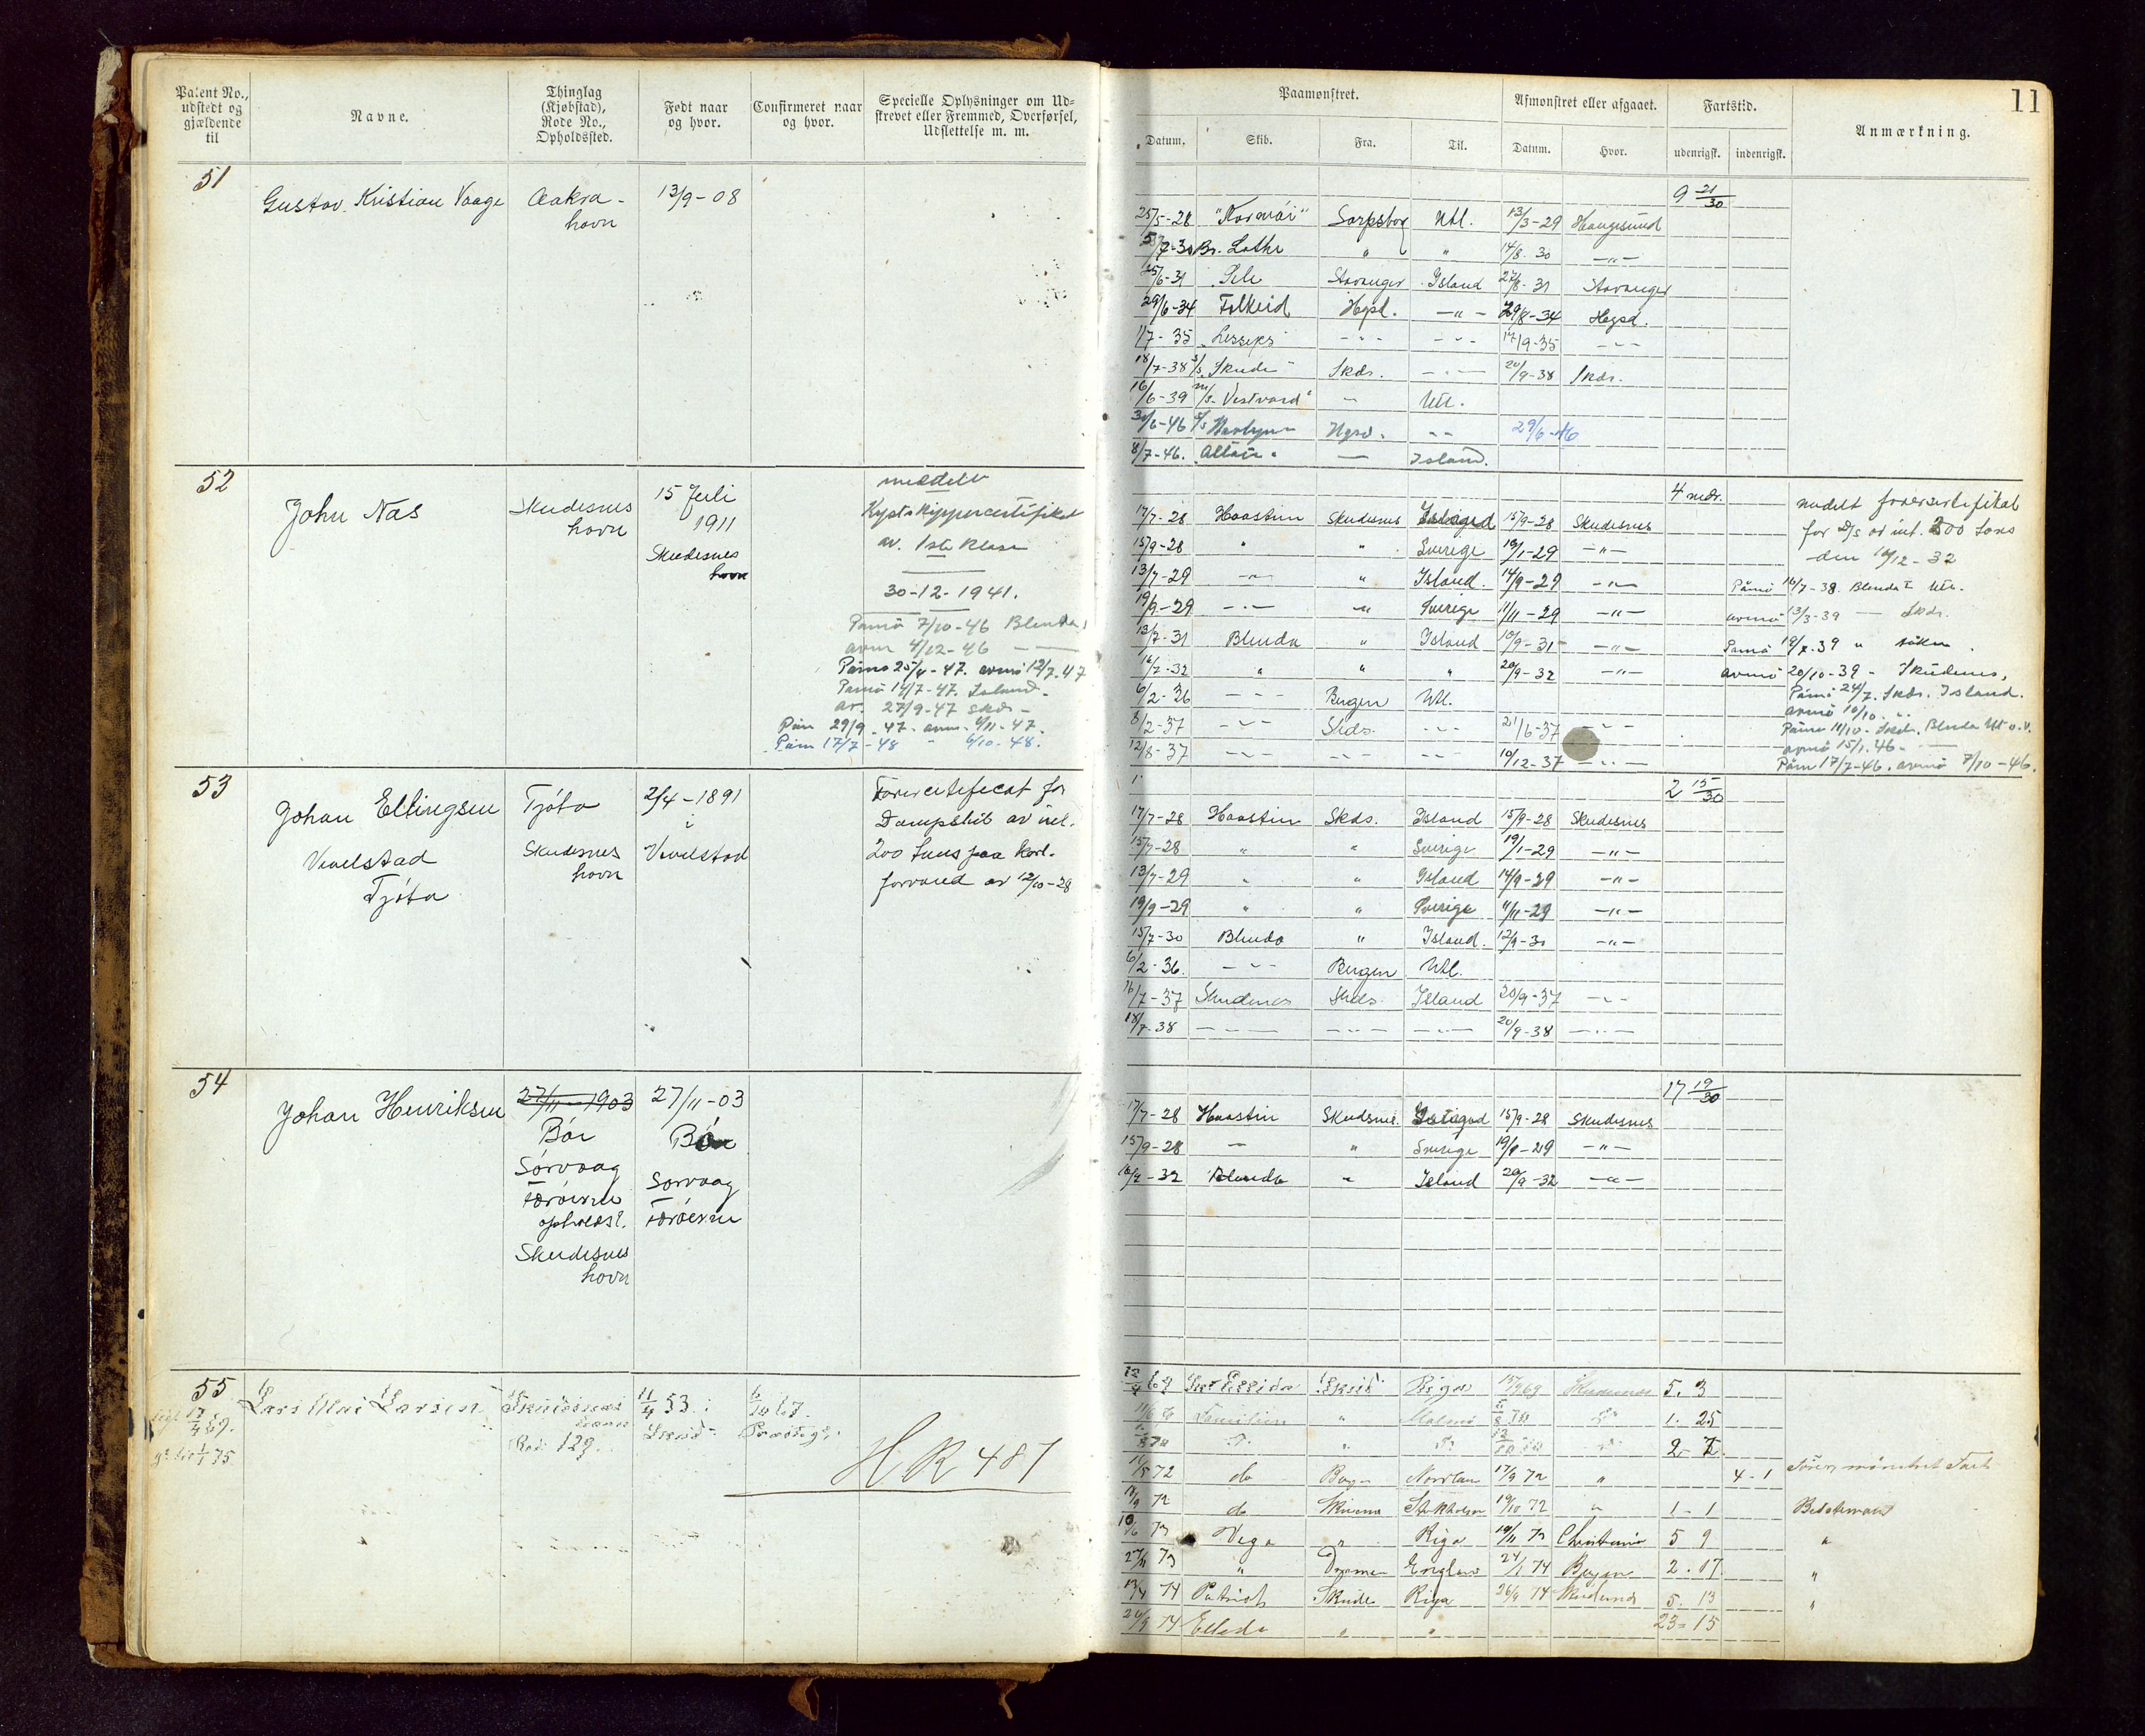 Patent No., udstedt og gjældende til
Navne.
Thinglag (Kjøbstad), Rode No., Opholdssted.
Født naar og hvor.
Confirmeret naar og hvor.
Specielle Oplysninger om Udskrevet eller Fremmed, Overførsel, Udslettelse m. m.
Paamønstret.
Afmønstret eller afgaaet.
Fartstid.
Anmærkning.
11
Datum.
Skib.
Fra.
Til.
Datum.
Hvor.
udenrigsk.
indenrigsk.
51
Gustav Kristian Vaage
Aakra-
havn
13/9-08
9 21/30
25/5-28 "Karmöi" Sarpsborg Utl. 13/3-29 Haugesund
Br. Lothe " " 14/8-30 -"-
25/6-31 Sele Stavanger Island 27/8-31 Stavanger
29/6-34 Falkeid Hgsd. -"- 29/8-34 Hgsd.
1/7-35 Lesseps -"- -"- 17/9-35 -"-
18/7-38 s/s Skude Skds. -"- 20/9-38 Skds.
16/6-39 m/s Vestvard - Utl.
Hgsd. -"- 29/6-46
8/7-46. Altair - Island.
52
John Nas
Skudesnes
havn
15 Juli
1911
Skudesnes
havn
meddelt
Kystskippercertifikat
av 1ste Klasse
30-12-1941.
Påmö 7/10-46 Blenda,
avm 4/12-46 -
Påmö 25/4-47. avmö 12/7-47
Påmö 14/7-47. Island-
av. 27/9-47 Skds-
Påm 29/9-47 avm. 4/11-47.
Påm 17/7-48 - 6/10-48.
4 mdr.
17/7-28 Haastein Skudesnes Island 15/9-28 Skudesnes
15/9-28 " " Sverige 19/1-29 -"-
13/7-29 -"- " Island. 14/9-29 -"-
19/9-29 -"- " Sverige 11/11-29 -"-
13/7-31 Blenda " Island 10/9-31 -"-
16/7-32 " " " 20/9-32 -"-
6/2-36 -"- Bergen Utl.
8/2-37 -"- Skds. -"- 21/6-37 -"-
12/8-37 -"- -"- -"- 10/12-37 -"-
for D/S av int. 200 tons
den 16/12-32
Påmö 16/7-38 Blenda Utl.
avmö 13/3-39 - Skds.
Påmö 19/7-39 "
avmö 20/10-39 - Skudenes,
Påmö 24/7. Skds. Island.
avmö 10/10 "
Påmö 11/10 - Skds. Blenda Utl
avmö 15/1.46 -
Påm 17/7-46. avmö 7/10-46.
53
Johan Ellingsen
Vevelstad
Tjøta
Tjøta
Skudesnes
havn
2/4-1891
i
Vevelstad
Førercertificat for
Dampskib av int.
200 tons paa
av 12/10-28
2 15/30
17/7-28 Haastein Skds. Island 15/9-28 Skudesnes
15/9-28 " " Sverige 19/1-29 -"-
13/7-29 " " Island 14/9-29 -"-
19/9-29 " " Sverige 11/11-29 -"-
15/7-30 Blenda " Island. 12/9-30 -"-
6/2-36. -"- Bergen Utl.
16/7-37 Skudenes Skds. Island 20/9-37 -"-
18/7-38 -"- -"- -"- 20/9-38 -"-
54
Johan Henriksen
27/11-1903
Bör
Sörvaag
Færöerne
opholdst.
Skudesnes
havn
27/11-03
Bör
Sörvaag
Færöerne
17 19/30
17/7-28 Haastein Skudesnes Island 15/9-28 Skudesnes
15/9-28 - " Sverige 19/1-29 -"-
16/7-32 Blenda " Island 20/9-32 -"-
55
17/4 69.
1/1 75
Lars Olai Larsen
Skudesnes
havn
Rode 129.
11/4 53 i
6/10 67.
HR 487
Ellida Riga Skudesnes 5. 3
Familien " Malmö 5/8 70 1. 25
2- 7
72 do Bergen Nordland 17/9 72 " 4-1
72 do Stokholm 19/10 72 " 1-1 Bestemand
10/6 73 Vega " Riga 19/11 73 Christiania 5 9 "
27/11 73 " England 24/1 74 Bergen 2. 17 "
13/4 74 Patriot Skudes Riga 26/9 74 Skudesnes 5. 13 "
26/9 74 Ellida " " 23=15